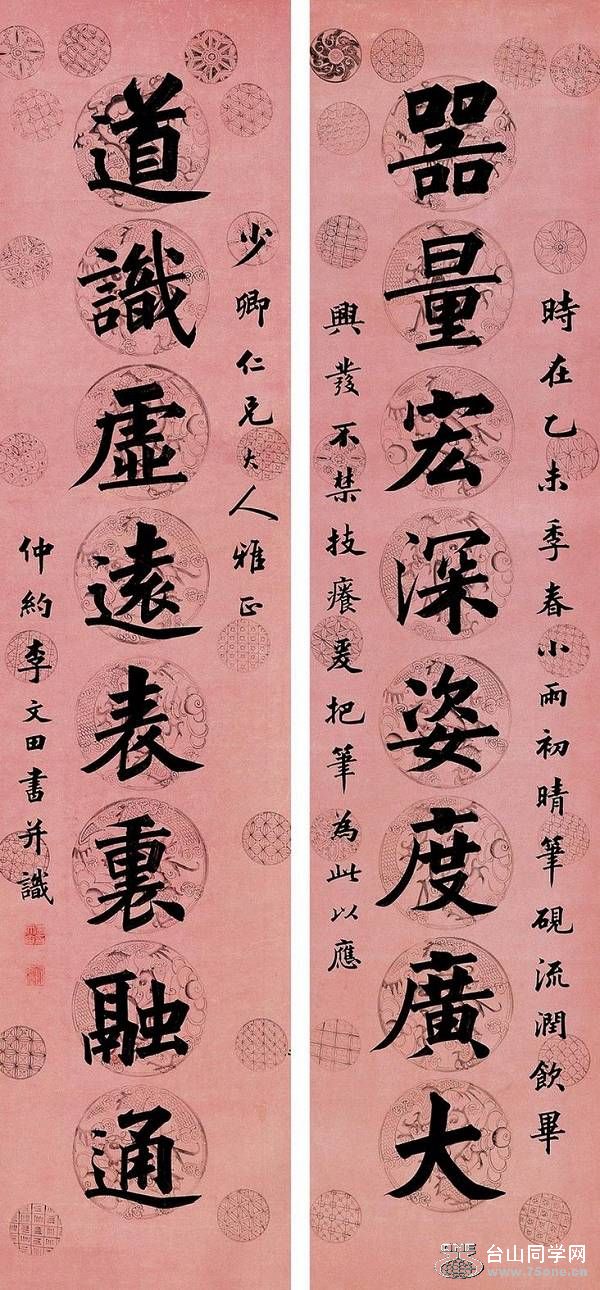 器量宏深姿度廣大
時在乙未季春小雨初晴筆硯流潤飲畢
興發不禁技癢爰把筆為此以應
道識虛遠表裏融通
少卿仁兄大人雅正
仲約李文田書并識
ONE
台山同学网
www.75one.cn